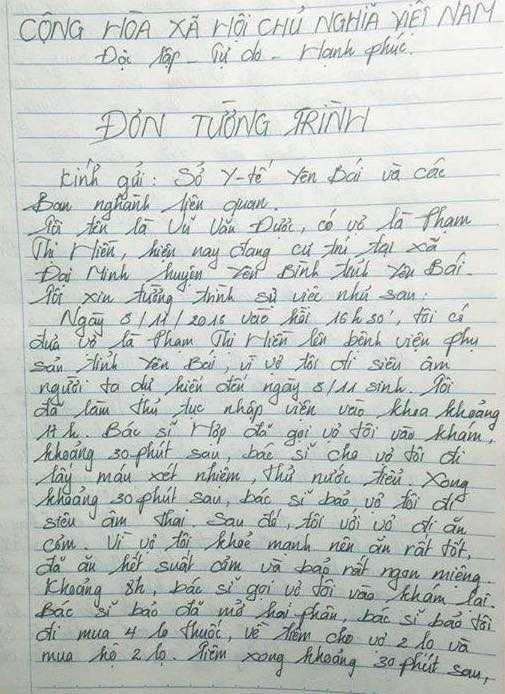 CỘNG HÒA XÃ HỘI CHỦ NGHĨA VIỆT NAM
Độc lập - Tự do - Hạnh phúc.
ĐƠN TƯỜNG TRÌNH
Kính gửi: Sở Y-tế Yên Bái và các
Ban nghành liên quan.
Tôi tên là Vũ Văn Được, có vợ là Phạm
Thị Hiền, hiện nay đang cư trú tại xã
Đại Minh huyện Yên Bình tỉnh Yên Bái.
Tôi xin tường trình sự việc như sau:
Ngày 8/11/2016 vào hồi 16h30', tôi có
đưa vợ là Phạm Thị Hiền lên bệnh viện phụ
sản tỉnh Yên Bái, vì vợ tôi đi siêu âm
người ta dự kiến đến ngày 8/11 sinh. Tôi
đã làm thủ tục nhập viện vào khoa khoảng
17h. Bác sĩ Hợp đã gọi vợ tôi vào khám,
khoảng 30 phút sau, bác sĩ cho vợ tôi đi
lấy máu xét nhiệm, thử nước tiểu. Xong
khoảng 30 phút sau, bác sĩ bảo vợ tôi đi
siêu âm thai. Sau đó, tôi với vợ đi ăn
cơm. Vì vợ tôi khoẻ mạnh nên ăn rất tốt,
đã ăn hết suất cơm và bảo rất ngon miệng.
Khoảng 8h, bác sĩ gọi vợ tôi vào khám lại.
Bác sĩ bảo đã mở hai phân, bác sĩ bảo tôi
đi mua 4 lọ thuốc, về tiêm cho vợ 2 lọ và
mua hộ 2 lọ. Tiêm xong khoảng 30 phút sau,